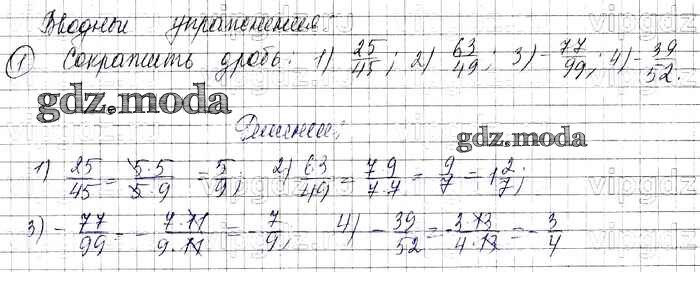 Вводные упражнения
① Сократить дробь. 1) 25/45; 2) 63/49; 3) -77/99; 4) -39/52.
gdz.moda
Решение:
gdz.moda
1) 25/45 = 5·5/5·9 = 5/9; 2) 63/49 = 7·9/7·7 = 9/7 = 1 2/7;
3) -77/99 = -7·11/9·11 = -7/9; 4) -39/52 = -3·13/4·13 = -3/4
vipgdz
vipgdz
vipgdz